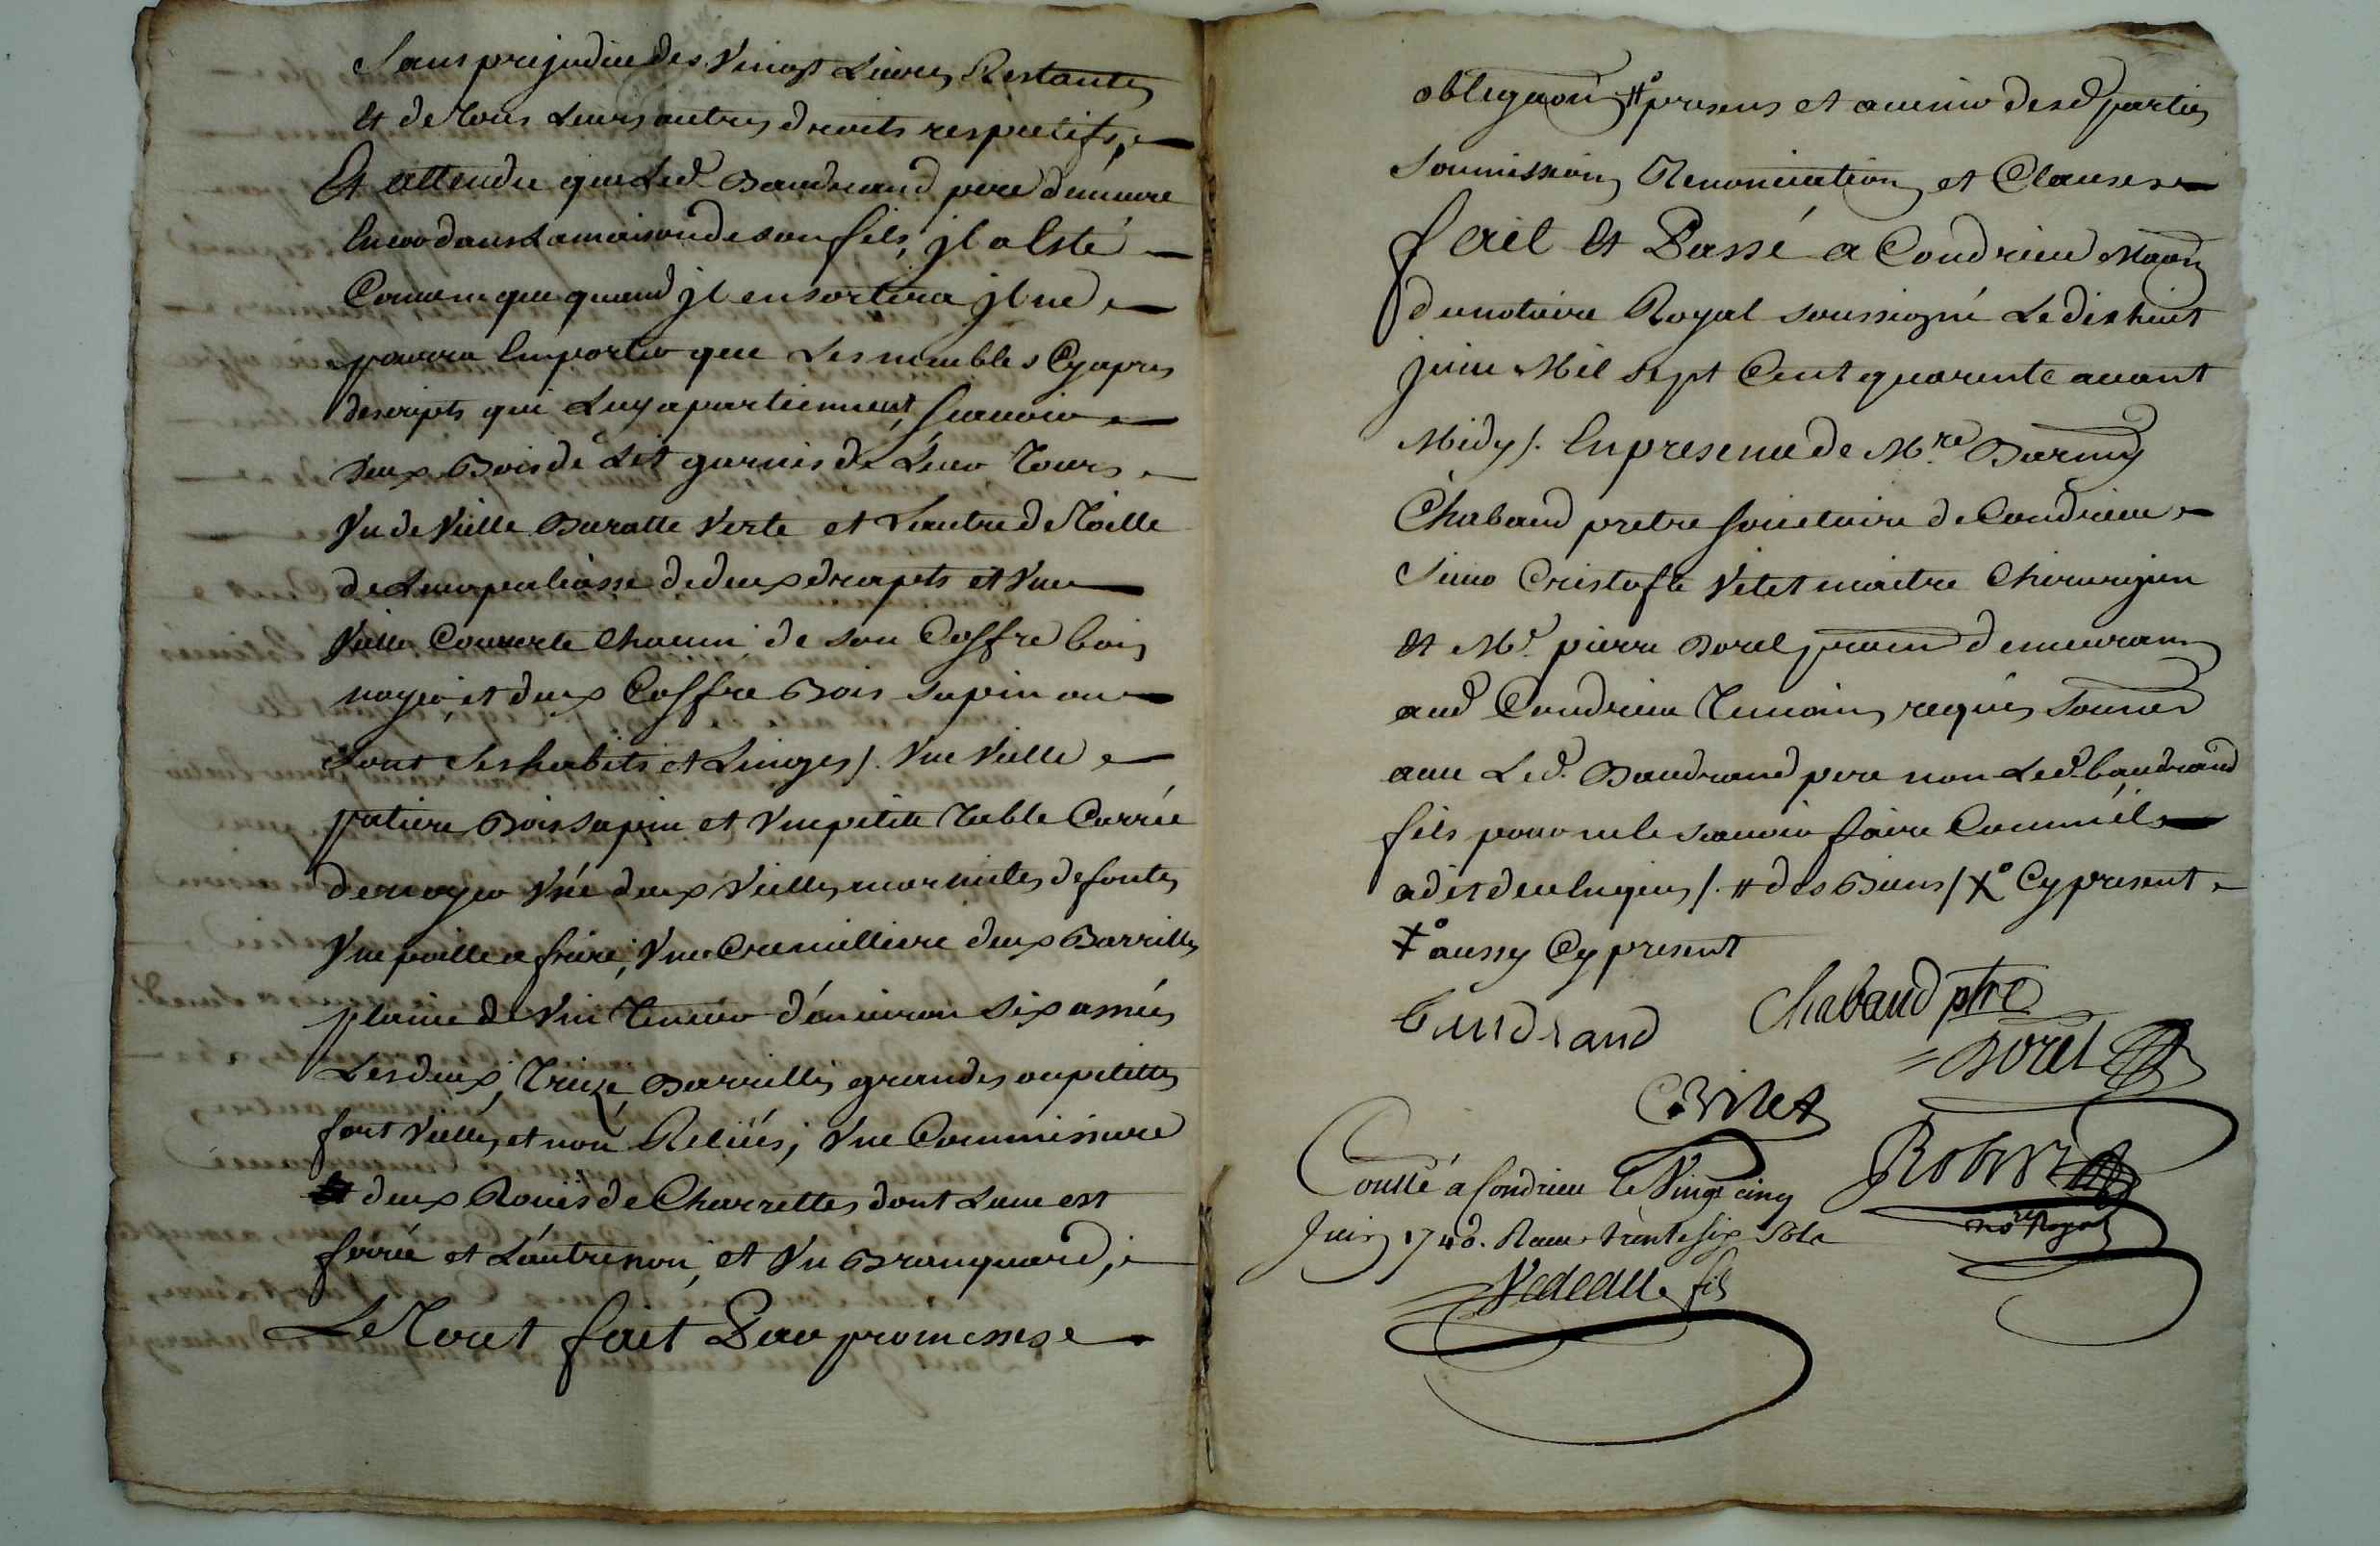 Sans prejudice des Vingt Livres Restantes
Et de Tous Leurs autres droits respectifs,
Et attendu que Led. Baudrand pere demeure
Encor dans La maison de son fils, jl a Esté
Convenu que quand jl en sortira jl ne
pourra Emporter que Les meubles Cy apres
descripts qui Luy apartiennent, scauoir
Deux Bois de Lit garnis de Leur Tours
Vn de Vielle Buratte Verte et L'autre de Toille
de Leur paliasse de deux drapts et Vne
Vielle Couuerte Chacun de son Coffre bois
noyer, et deux Coffre Bois sapin ou
sont Ses habits et Linges /. Vne Vielle
patiere Bois sapin et Vne petite Table Carrée
de noyer Vsée deux Vielles marmites de fontes
Vne poille a frire, Vne Cremilliere deux Barrilles
plaine de Vin Teneur d'enuiron six asnées
Les deux, Treize Barrilles grandes ou petittes
fort Vielles et non Reliées; Vne Commissure
Et deux Roües de Charrettes dont L'une est
ferrée et L'autre non, et Vn Branquard,
Le Tout fait Par promesses
obligaon #° presens et auenir desd parties
Soumissions Renonciations et Clauses
fait Et Passé a Condrieu Maison
du notaire Royal soussigné Le dix huit
juin Mil Sept Cent quarente auant
Midy /. En presence de Mre
Chabaud pretre Societaire de Condrieu
Sieur Cristofle Vilet maitre Chirurgien
Et Mr. pierre Borel demeurans
aud Condrieu Temoins requis Soussignés
auec Led. Baudrand pere non Led. baudrand
fils pour ne le scauoir faire Comm'il
a dit de ce Enquis /. # des Biens / X° Cy present
X° aussy Cy present
baudrand Chabaud ptre
Borel
C Vilet
Conllé a Condrieu le Vingt cinq
Juin 1740. Receu trente six sols
Robert
nore Royal
Vedeau fils